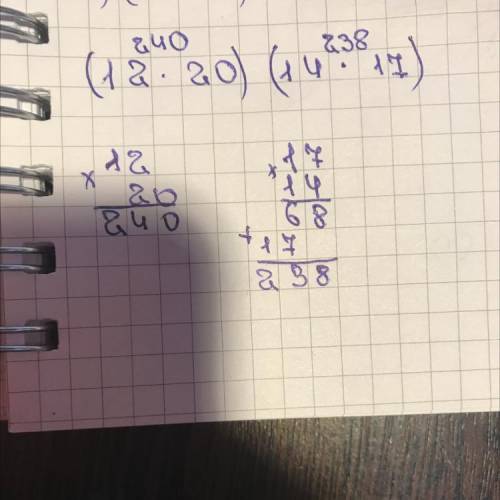 240 238
(12 · 20) (14 · 17)
12
× 20
240
17
× 14
68
+ 17
238